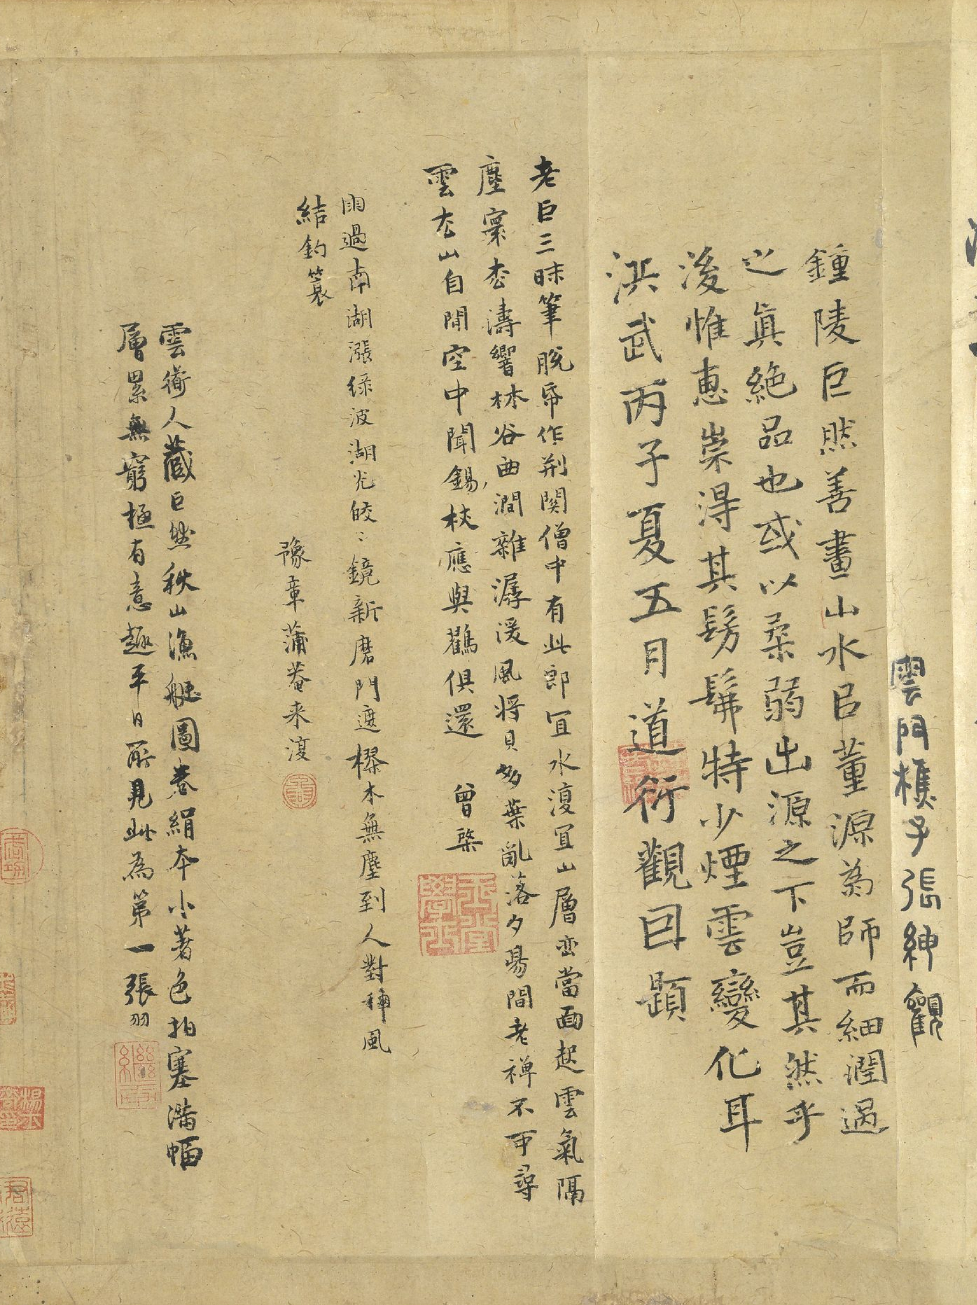 雲門樵子張紳觀
鍾陵巨然善畫山水巨董源為師而細潤過
之真絕品也或以柔弱出源之下豈其然乎
後惟惠崇得其髣髴特少煙雲變化耳
洪武丙子夏五月道衍觀因題
老巨三昧筆脫帚作荊關僧中有此郎冝水復冝山層巒當面起雲氣隔
塵寰松濤響林谷曲澗雜潺湲風將貝多葉亂落夕陽間老禪不可尋
雲木山自閒空中聞錫杖應與鶴俱還 曾棨
雨過南湖漲綠波湖光皎〻鏡新磨門遮櫟木無塵到人對稀風
結釣簑
豫章蒲菴来復
雲衢人藏巨然秋山漁艇圖卷絹本小著色拍塞滿幅
層累無窮極有意趣平日所見此為第一張羽